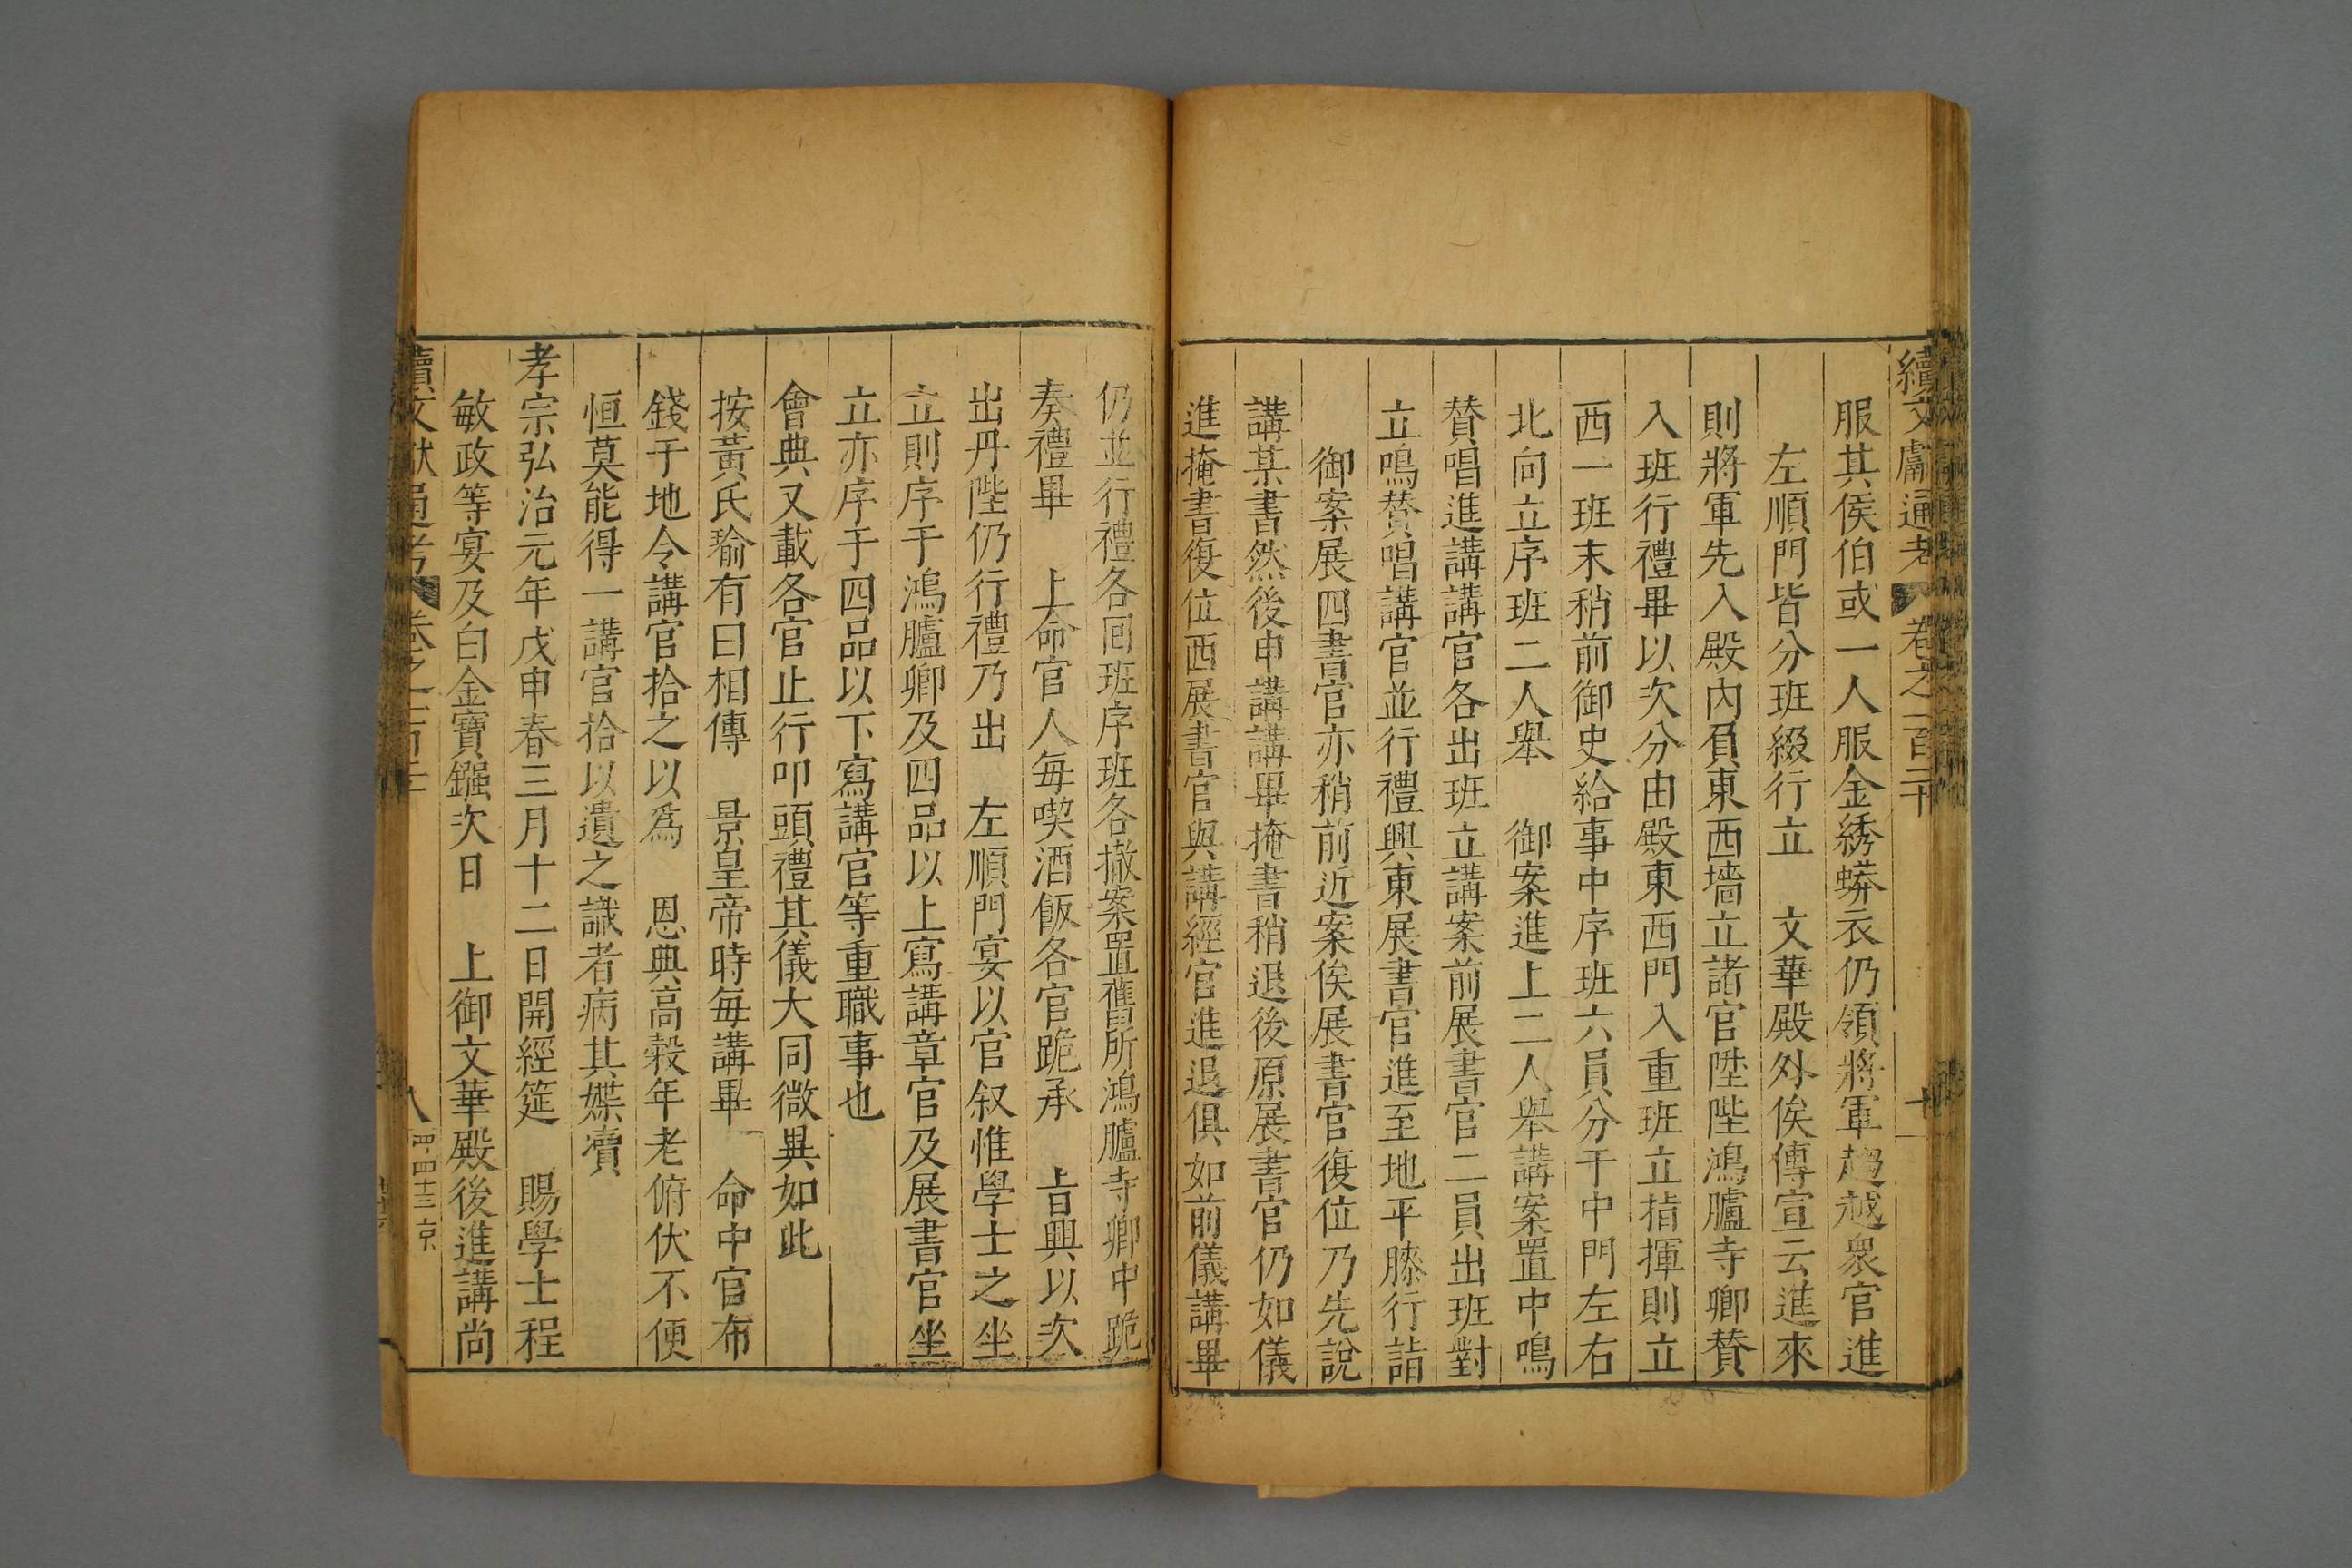 續文獻通考 卷之一百二十 十
服其侯伯或一人服金綉蟒衣仍領將軍趨越衆官進
左順門皆分班綴行立 文華殿外俟傳宣云進來
則將軍先入殿內負東西墻立諸官陞陛鴻臚寺卿贊
入班行禮畢以次分由殿東西門入重班立指揮則立
西一班末稍前御史給事中序班六員分于中門左右
北向立序班二人舉 御案進上二人舉講案置中鳴
賛唱進講講官各出班立講案前展書官二員出班對
立鳴賛唱講官並行禮興東展書官進至地平膝行詣
御案展四書官亦稍前近案俟展書官復位乃先說
講某書然後申講講畢掩書稍退後原展書官仍如儀
進掩書復位西展書官與講經官進退俱如前儀講畢
仍並行禮各回班序班各撤案置舊所鴻臚寺卿中跪
奏禮畢 上命官人每喫酒飯各官跪承 旨興以次
出丹陛仍行禮乃出 左順門宴以官叙惟學士之坐
立則序于鴻臚卿及四品以上寫講章官及展書官坐
立亦序于四品以下寫講官等重職事也
會典又載各官止行叩頭禮其儀大同微異如此
按黃氏瑜有曰相傳 景皇帝時每講畢 命中官布
錢于地令講官拾之以爲 恩典高穀年老俯伏不便
恒莫能得一講官拾以遺之識者病其媟瀆
孝宗弘治元年戊申春三月十二日開經筵 賜學士程
敏政等宴及白金寶鏹次日 上御文華殿後進講尚
續文獻通考 卷之一百二十 八 四四十三京